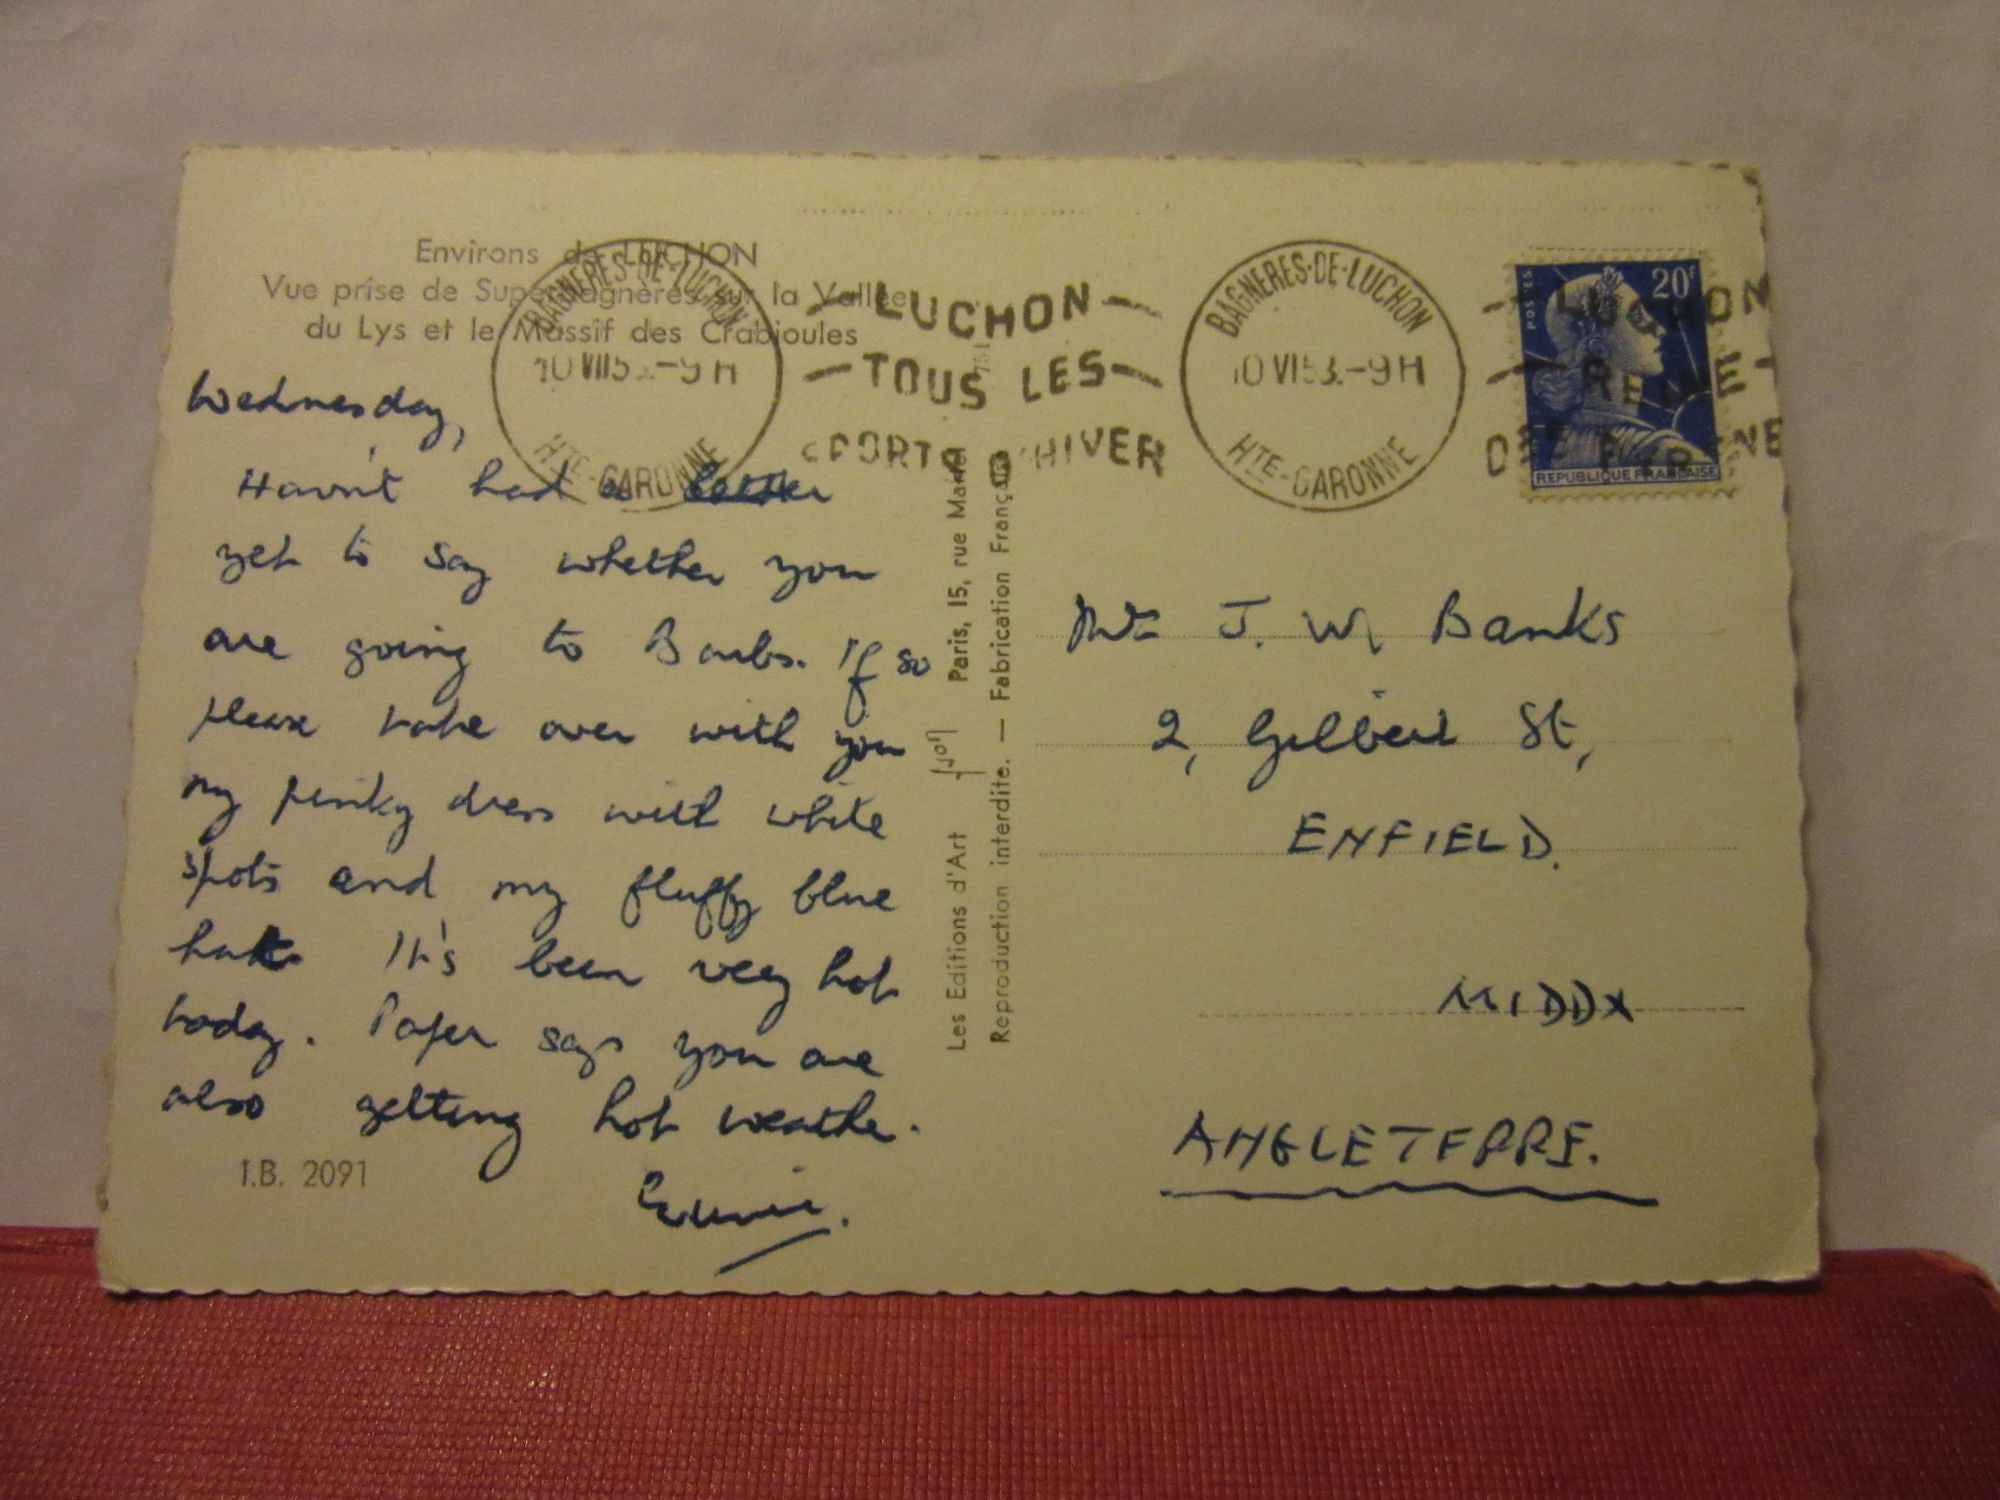 Environs de LUCHON
Vue prise de Superbagnères sur la Vallée
du Lys et le Massif des Crabioules
BAGNERES-DE-LUCHON
HTE-GARONNE
LUCHON
TOUS LES
SPORTS D'HIVER
BAGNERES-DE-LUCHON
HTE-GARONNE
-9H
LUCHON
REINE
POSTES
20F
REPUBLIQUE FRANCAISE
Wednesday,
Havn't had a letter
yet to say whether you
are going to Barbs. If so
please take over with you
my pinky dress with white
spots and my fluffy blue
hat. It's been very hot
today. Paper says you are
also getting hot weather.
Eunie.
I.B. 2091
Les Editions d'Art Yvon Paris, 15, rue Martel
Reproduction interdite. — Fabrication Française
J. W. Banks
2, Gilbert St,
ENFIELD.
MIDDX
ANGLETERRE.